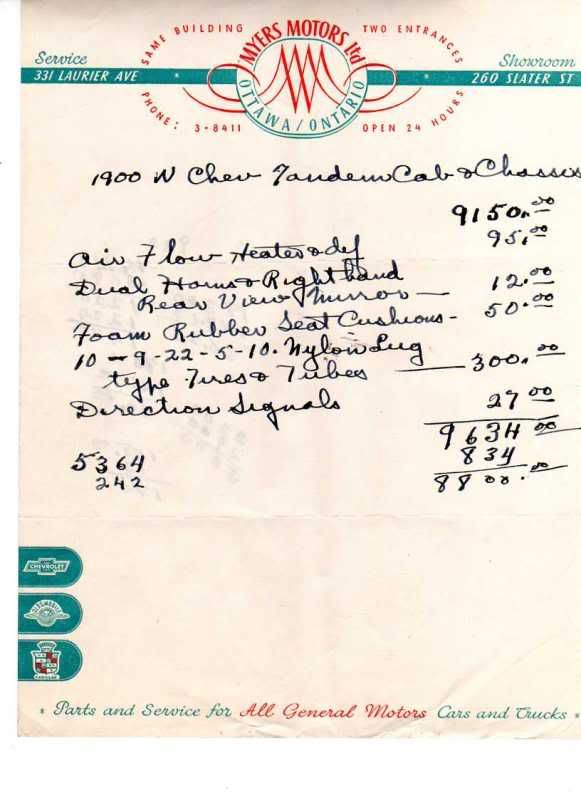 SAME BUILDING TWO ENTRANCES
MYERS MOTORS Ltd
Service Showroom
331 LAURIER AVE 260 SLATER ST
OTTAWA / ONTARIO
PHONE: 3-8411 OPEN 24 HOURS
1900 W Chev Tandem Cab & Chassis
9150.00
Air Flow Heater & def 95.00
Dual Horns & Right hand
Rear View Mirror — 12.00
Foam Rubber Seat Cushions - 50.00
10 - 9-22-5-10. Nylon Lug
type Tires & Tubes — 300.00
Direction Signals 27 00
9634 00
5364 834
242 8800.00
CHEVROLET
OLDSMOBILE
CADILLAC
* Parts and Service for All General Motors Cars and Trucks *